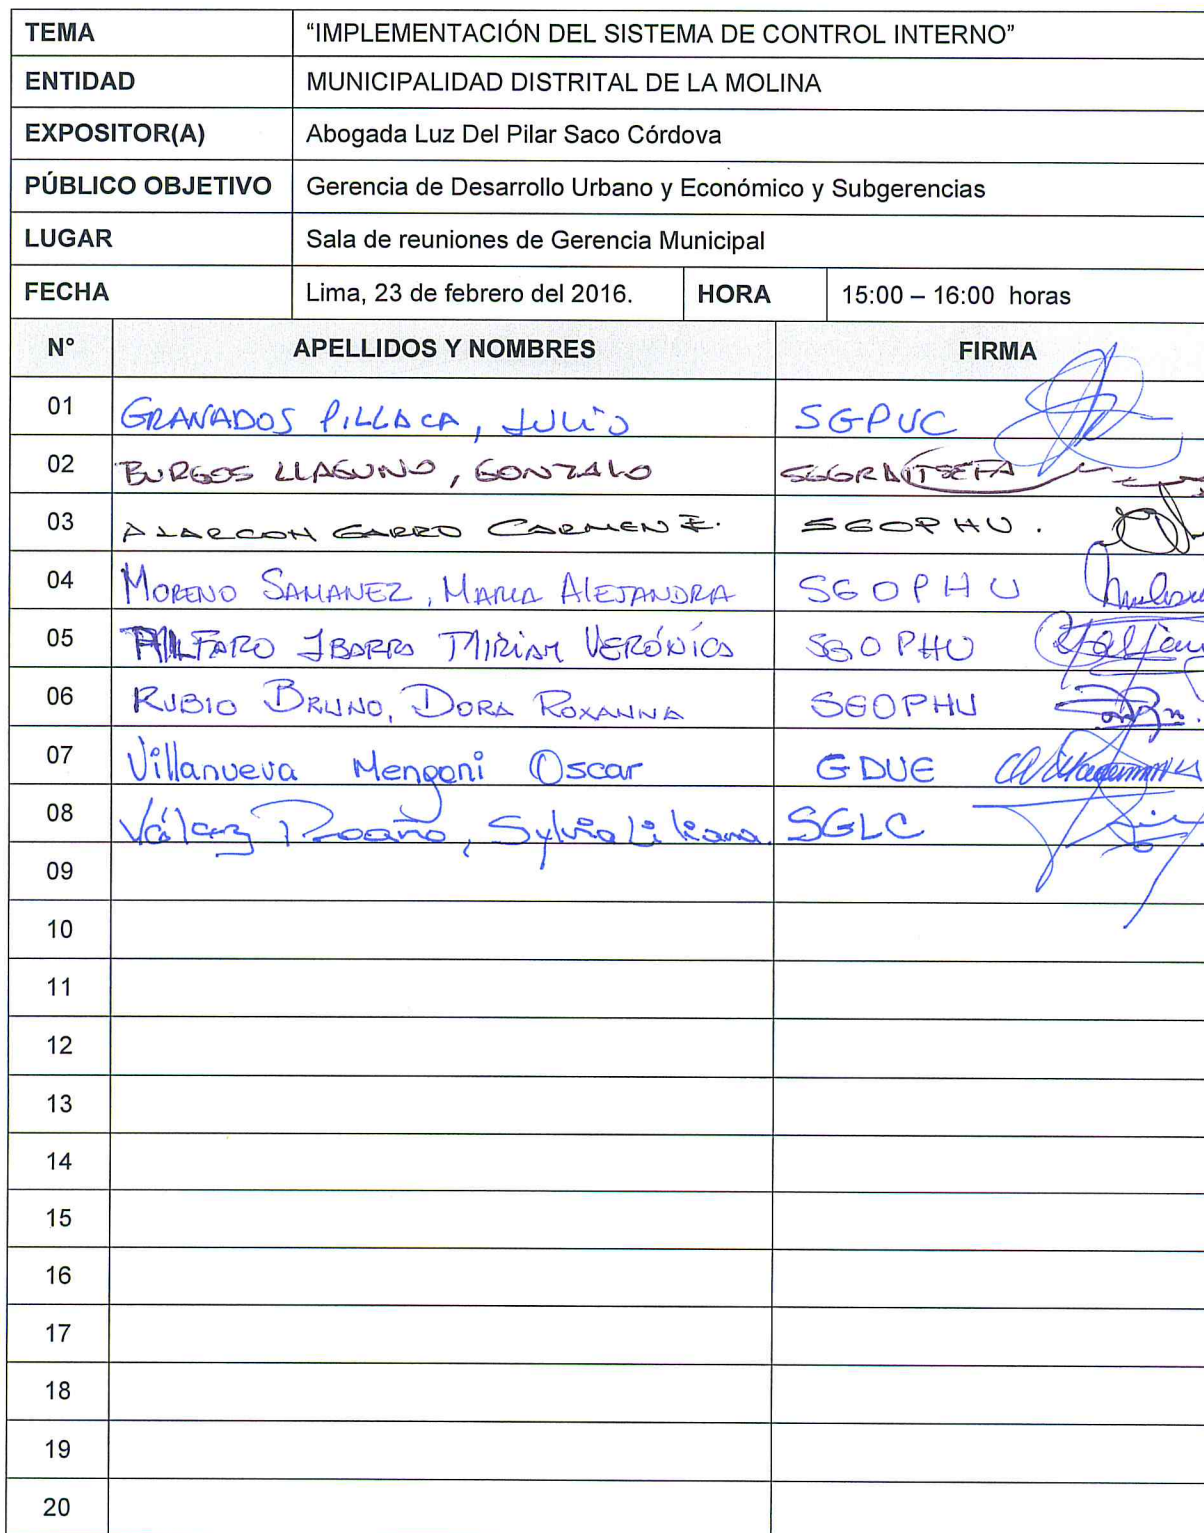 TEMA "IMPLEMENTACIÓN DEL SISTEMA DE CONTROL INTERNO"
ENTIDAD MUNICIPALIDAD DISTRITAL DE LA MOLINA
EXPOSITOR(A) Abogada Luz Del Pilar Saco Córdova
PÚBLICO OBJETIVO Gerencia de Desarrollo Urbano y Económico y Subgerencias
LUGAR Sala de reuniones de Gerencia Municipal
FECHA Lima, 23 de febrero del 2016. HORA 15:00 – 16:00 horas
N° APELLIDOS Y NOMBRES FIRMA
01 GRANADOS PILLACA, JULIO SGPUC
02 BURGOS LLAGUNO, GONZALO
03 ALARCON GARRO CARMEN E. SGOPHU.
04 MORENO SAMANEZ, MARIA ALEJANDRA SGOPHU
05 ALFARO IBARRA MIRIAM VERÓNICA SGOPHU
06 RUBIO BRUNO, DORA ROXANNA SGOPHU
07 Villanueva Mengoni Oscar GDUE
08 Sylvia Liliana. SGLC
09
10
11
12
13
14
15
16
17
18
19
20